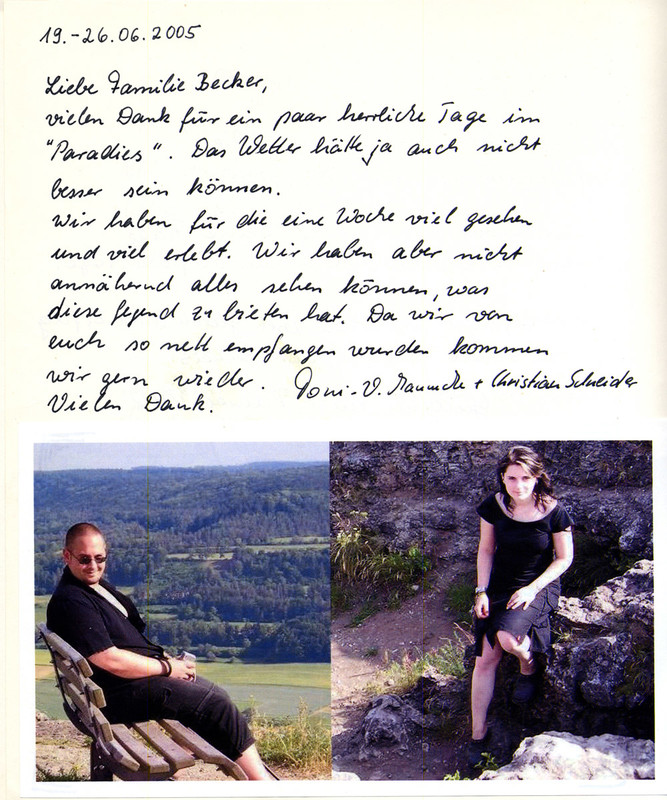 19.-26.06.2005
Liebe Familie Becker,
vielen Dank für ein paar herrliche Tage im
"Paradies". Das Wetter hätte ja auch nicht
besser sein können.
Wir haben für die eine Woche viel gesehen
und viel erlebt. Wir haben aber nicht
annähernd alles sehen können, was
diese Gegend zu bieten hat. Da wir von
euch so nett empfangen wurden kommen
wir gern wieder. + Christian Schneider
Vielen Dank.